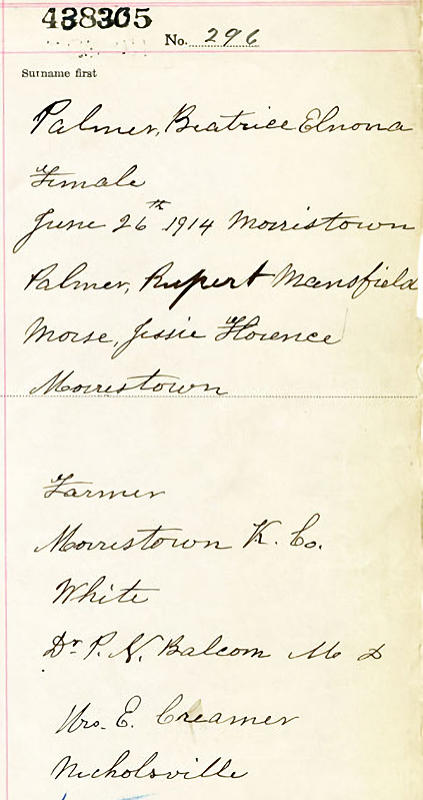 438305
No. 296
Surname first
Palmer, Beatrice Elnona
Female
June 26th 1914 Morristown
Palmer, Rupert Mansfield
Morse, Jessie Florence
Morristown
Farmer
Morristown K. Co.
White
Dr. P. N. Balcom M D
Mrs. E. Creamer
Nicholsville